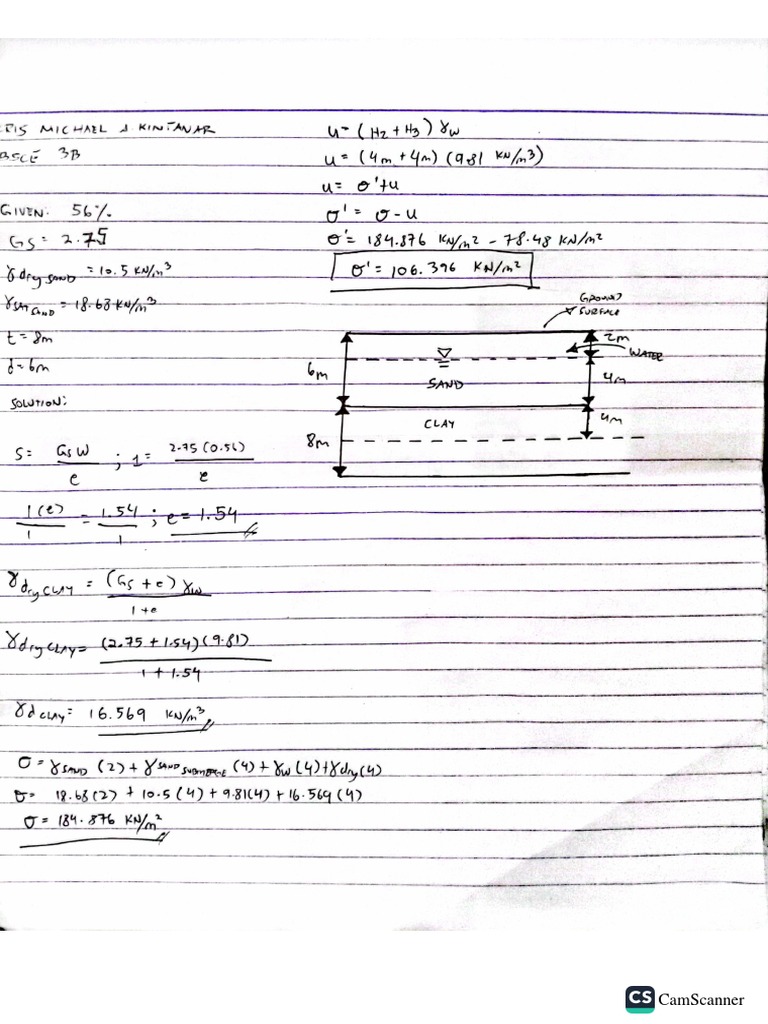 CRIS MICHAEL A KINTANAR
BSCE 3B
GIVEN: 56%
GS = 2.75
γ dry SAND = 10.5 KN/m³
γ SAT SAND = 18.68 KN/m³
t = 8m
d = 6m
SOLUTION:
S = GsW / e ; 1 = 2.75(0.56) / e
1(e) / 1 = 1.54 / 1 ; e = 1.54
γ dry CLAY = (Gs + e) γw / 1+e
γ dry CLAY = (2.75 + 1.54)(9.81) / 1 + 1.54
γd CLAY = 16.569 KN/m³
σ = γ SAND (2) + γ SAND SUBMERGE (4) + γw (4) + γdry (4)
σ = 18.68(2) + 10.5(4) + 9.81(4) + 16.569(4)
σ = 184.876 KN/m²
u = (H2 + H3) γw
u = (4m + 4m) (9.81 KN/m³)
u = σ' + u
σ' = σ - u
σ' = 184.876 KN/m² - 78.48 KN/m²
σ' = 106.396 KN/m²
GROUND
SURFACE
2m
WATER
6m
4m
SAND
CLAY
4m
8m
CS CamScanner